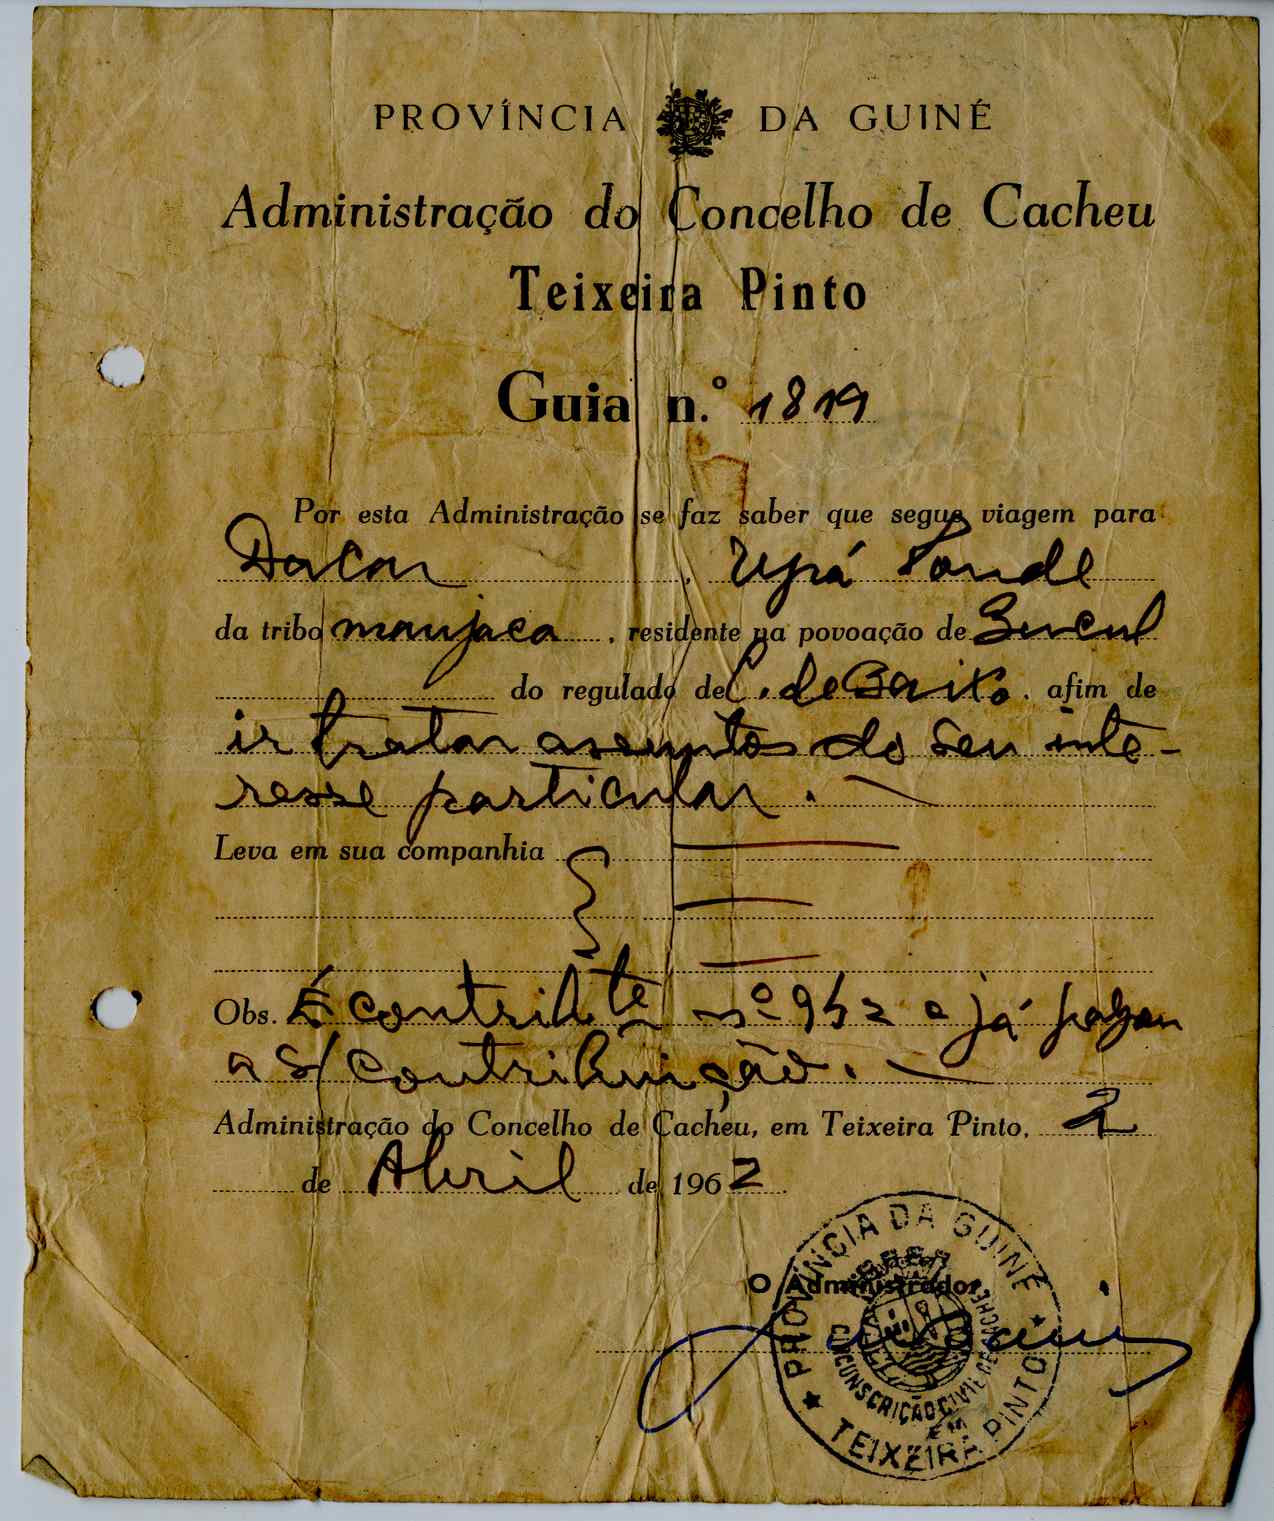 PROVÍNCIA DA GUINÉ
Administração do Concelho de Cacheu
Teixeira Pinto
Guia n.º 1819
Por esta Administração se faz saber que segue viagem para
Dacar, Upá Tonde
da tribo manjaca, residente na povoação de
do regulado de C. de Baixo, afim de
ir tratar assuntos do seu inte-
resse particular.
Leva em sua companhia
Obs. É contribte nº 952 e já pagou
a s/ contribuição.
Administração do Concelho de Cacheu, em Teixeira Pinto, 2
de Abril de 1962
O Administrador
PROVÍNCIA DA GUINÉ
CIRCUNSCRIÇÃO CIVIL DE CACHEU
EM
TEIXEIRA PINTO